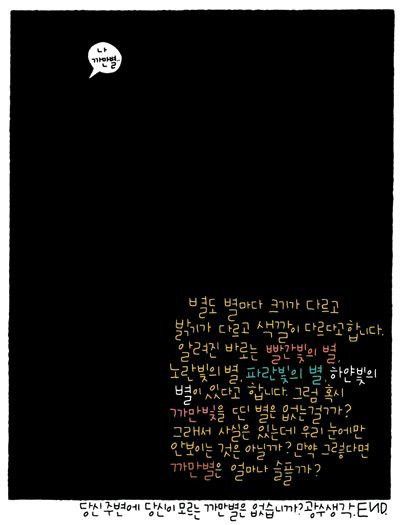 나
까만별..
별도 별마다 크기가 다르고
밝기가 다르고 색깔이 다르다고합니다.
알려진 바로는 빨간빛의 별,
노란빛의 별, 파란빛의 별, 하얀빛의
별이 있다고 합니다. 그럼 혹시
까만빛을 띤 별은 없는걸까?
그래서 사실은 있는데 우리 눈에만
안보이는 것은 아닐까? 만약 그렇다면
까만별은 얼마나 슬플까?
당신 주변에 당신이 모르는 까만별은 없습니까? 광수생각. END.